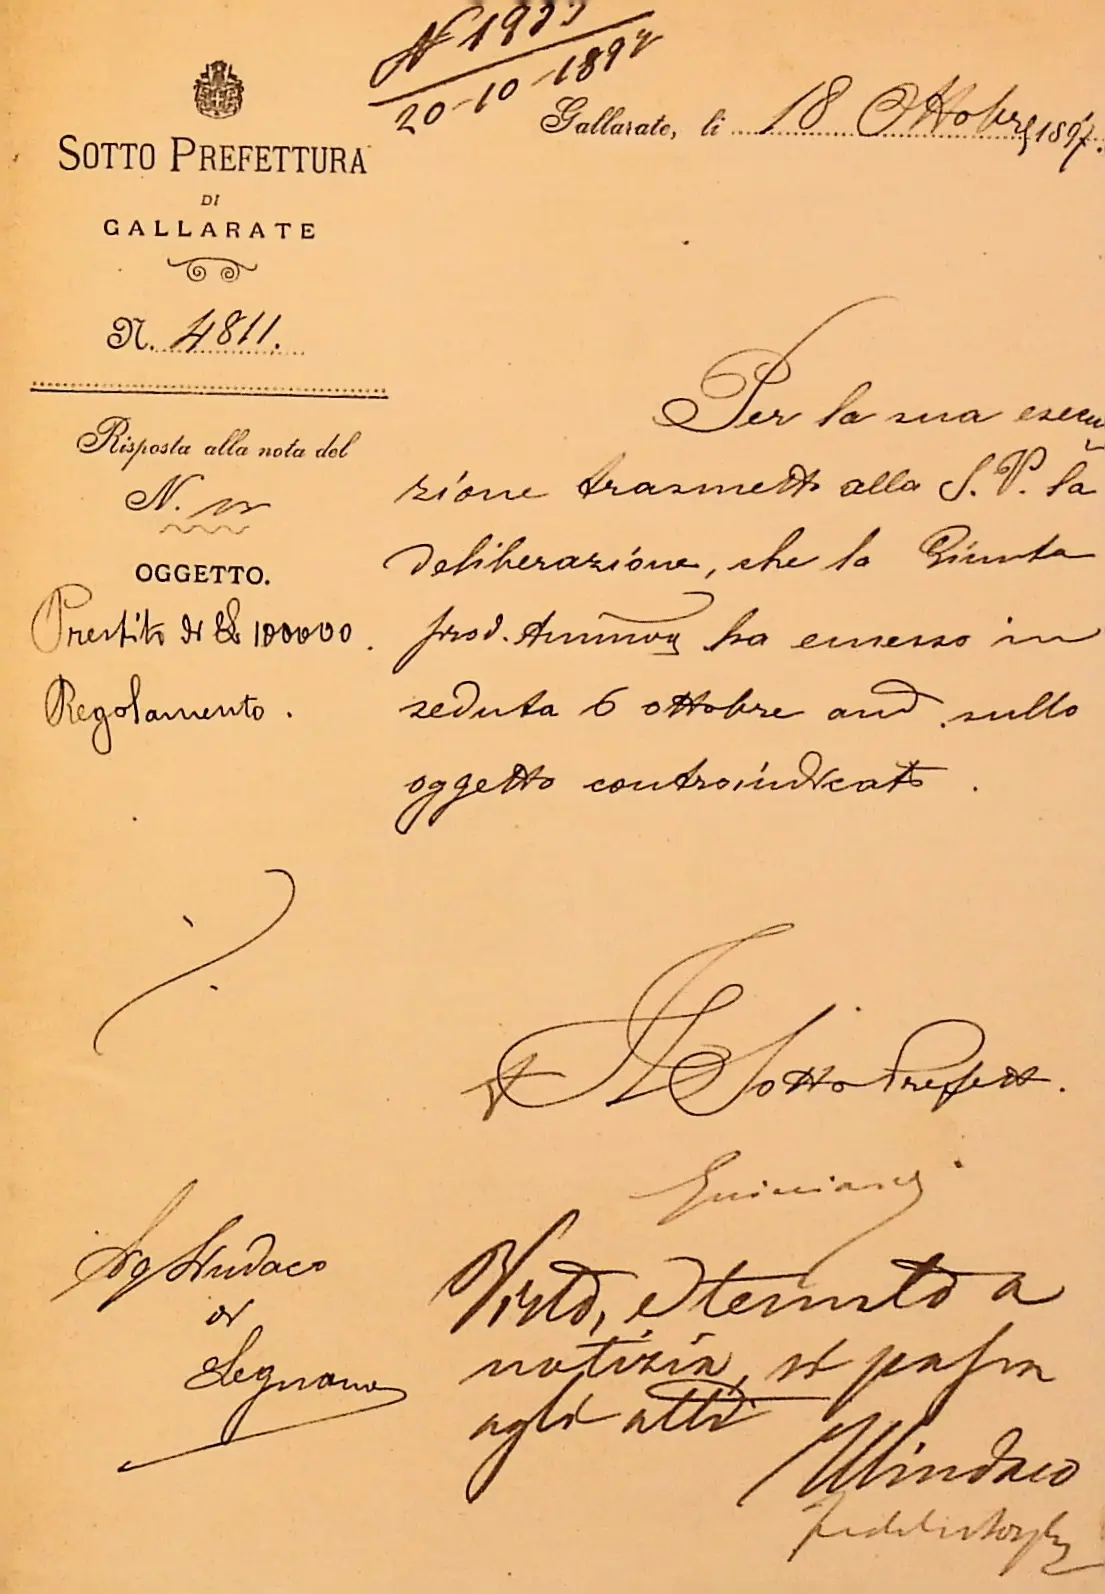 20-10-1897
Gallarate, li 18 Ottobre 1897.
SOTTO PREFETTURA
DI
GALLARATE
N. 4811.
Risposta alla nota del
N.
OGGETTO.
Prestito di £ 100000.
Regolamento.
Per la sua esecu
zione trasmetto alla S.V. la
deliberazione, che la Giunta
prov. Amm ha emesso in
seduta 6 ottobre and. sullo
oggetto controindicato.
Il Sotto Prefetto.
Sig Sindaco
di
Legnano
Visto, e tenuto a
notizia, si passa
agli atti
Il Sindaco